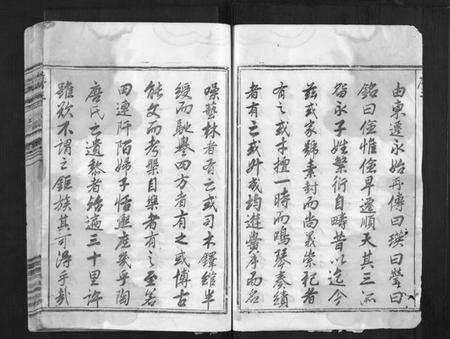 由東遼永始再傳曰瑛曰瑩曰
銘曰儉惟儉早遷順天其三派
猶永子姓繁衍自疇昔以迄今
茲或家號素封而尚義崇祀者
有之或才擅一時而鳴琴奏績
者有之或外或均遊黌序而名
噪藝林者有之或司木鐸綰半
綬而馳譽四方者有之或博古
能文而考槃自樂者有之至若
田連阡陌婦子恬熙庶幾乎陶
唐氏之遺黎者殆遍三十里許
雖欲不謂之鉅族其可得乎哉